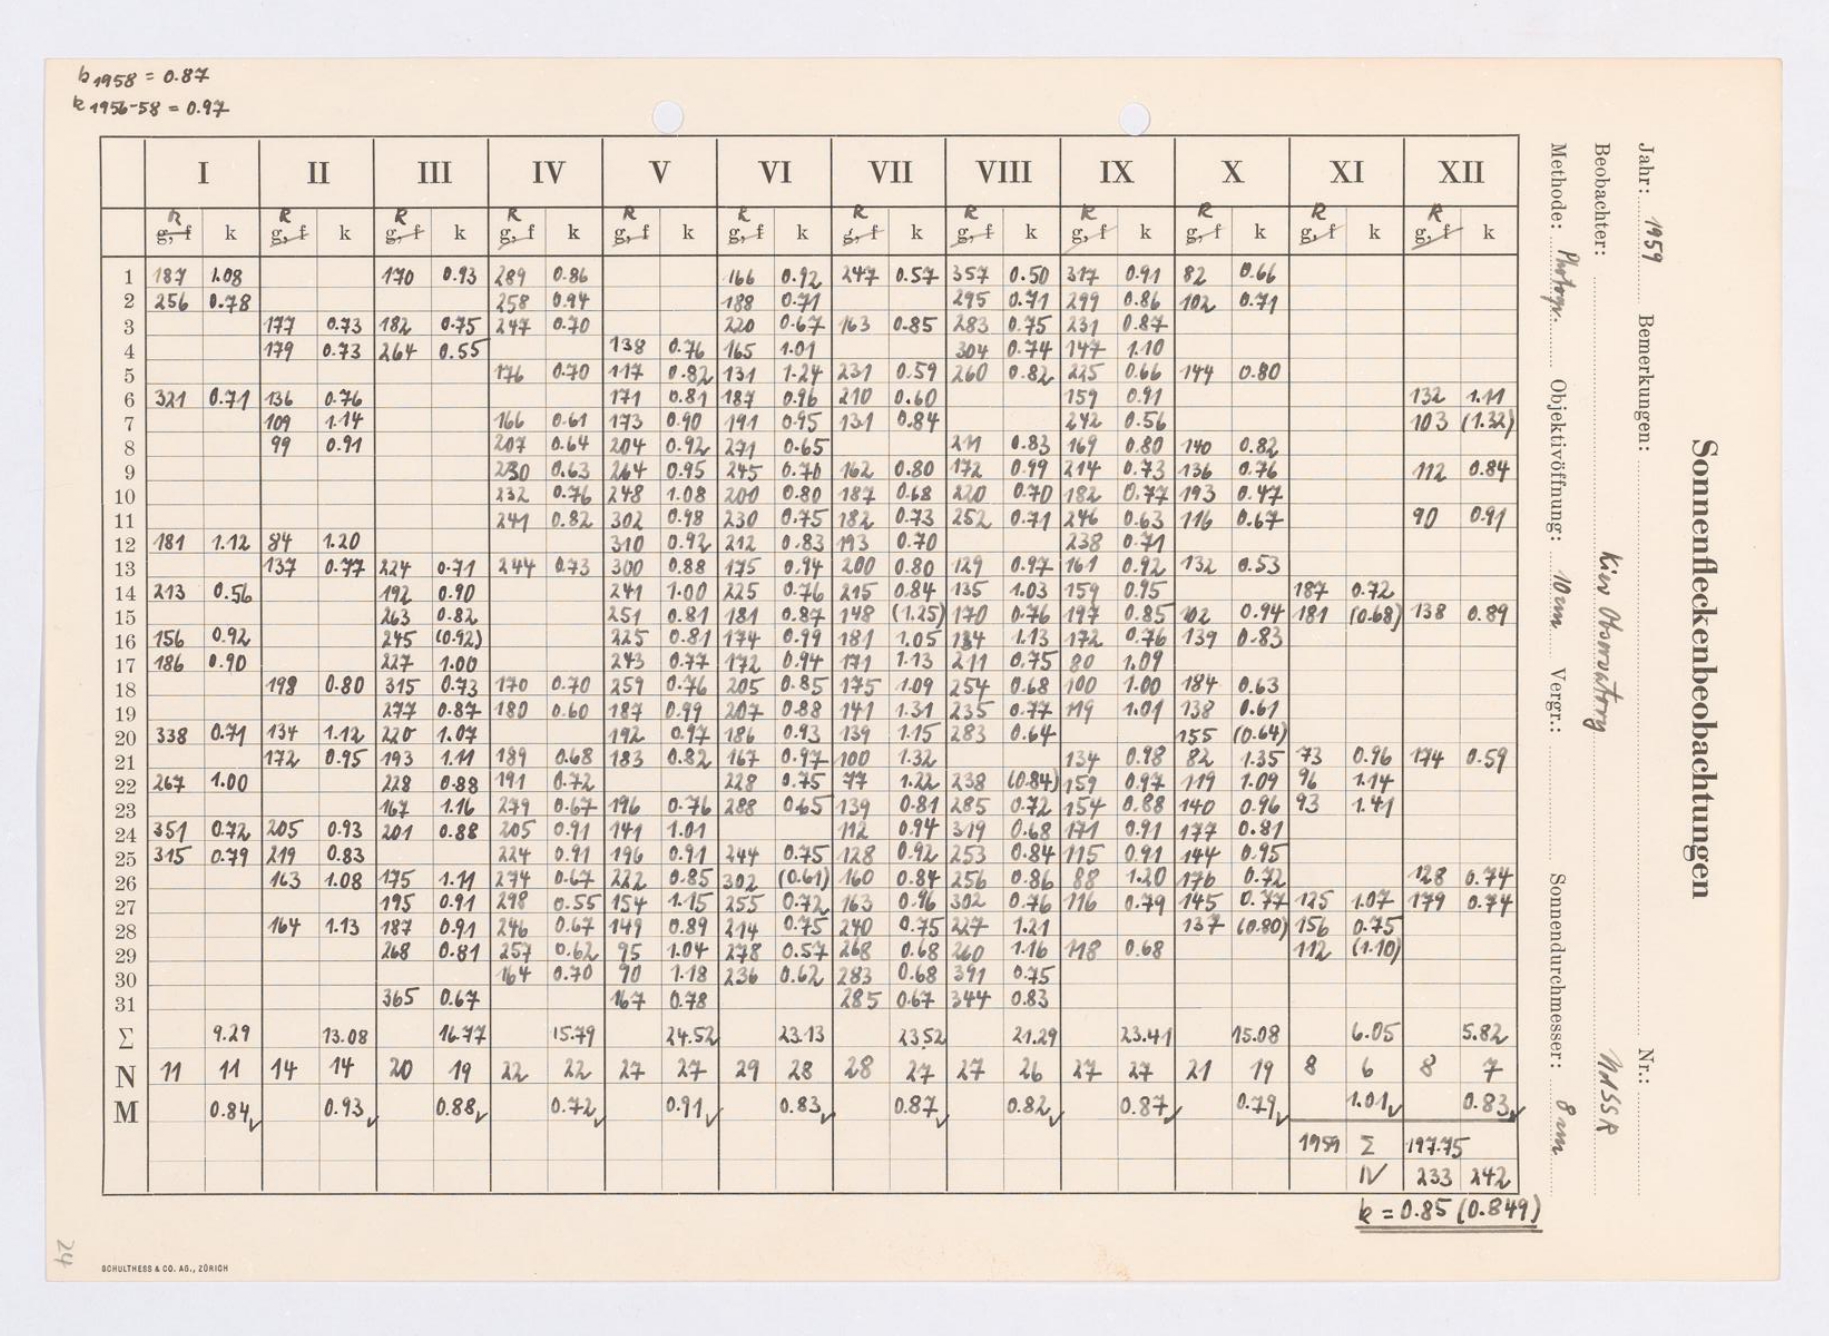 b 1958 = 0.87
k 1956-58 = 0.97
Sonnenfleckenbeobachtungen
Jahr: 1959 Bemerkungen: Nr.:
Beobachter: Kiev Observatory UdSSR
Methode: Photogr. Objektivöffnung: 10 cm Vergr.: Sonnendurchmesser: 8 cm
I II III IV V VI VII VIII IX X XI XII
R R R R R R R R R R R R
g, f k g, f k g, f k g, f k g, f k g, f k g, f k g, f k g, f k g, f k g, f k g, f k
1 187 1.08 170 0.93 289 0.86 166 0.92 247 0.57 357 0.50 317 0.91 82 0.66
2 256 0.78 258 0.94 188 0.71 295 0.71 299 0.86 102 0.71
3 177 0.73 182 0.75 247 0.70 220 0.67 163 0.85 283 0.75 231 0.87
4 179 0.73 264 0.55 138 0.76 165 1.01 304 0.74 147 1.10
5 176 0.70 117 0.82 131 1.24 231 0.59 260 0.82 225 0.66 144 0.80
6 321 0.71 136 0.76 171 0.81 187 0.96 210 0.60 159 0.91 132 1.11
7 109 1.14 166 0.61 173 0.90 191 0.95 131 0.84 242 0.56 103 (1.32)
8 99 0.91 207 0.64 204 0.92 271 0.65 211 0.83 169 0.80 140 0.82
9 230 0.63 264 0.95 245 0.70 162 0.80 172 0.99 214 0.73 136 0.76 112 0.84
10 232 0.76 248 1.08 200 0.80 187 0.68 220 0.70 182 0.77 193 0.47
11 241 0.82 302 0.98 230 0.75 182 0.73 252 0.71 246 0.63 116 0.67 90 0.91
12 181 1.12 84 1.20 310 0.92 212 0.83 193 0.70 238 0.71
13 137 0.77 224 0.71 244 0.73 300 0.88 175 0.94 200 0.80 129 0.97 161 0.92 132 0.53
14 213 0.56 192 0.90 241 1.00 225 0.76 215 0.84 135 1.03 159 0.95 187 0.72
15 263 0.82 251 0.81 181 0.87 148 (1.25) 170 0.76 197 0.85 102 0.94 181 (0.68) 138 0.89
16 156 0.92 245 (0.92) 225 0.81 174 0.99 181 1.05 134 1.13 172 0.76 139 0.83
17 186 0.90 227 1.00 243 0.77 172 0.94 171 1.13 211 0.75 80 1.09
18 198 0.80 315 0.73 170 0.70 259 0.76 205 0.85 175 1.09 254 0.68 100 1.00 184 0.63
19 277 0.87 180 0.60 187 0.99 207 0.88 141 1.31 235 0.77 119 1.01 138 0.61
20 338 0.71 134 1.12 220 1.07 192 0.97 186 0.93 139 1.15 283 0.64 155 (0.64)
21 172 0.95 193 1.11 189 0.68 183 0.82 167 0.97 100 1.32 134 0.98 82 1.35 73 0.96 174 0.59
22 267 1.00 228 0.88 191 0.72 228 0.75 77 1.22 238 (0.84) 159 0.97 119 1.09 96 1.14
23 167 1.16 279 0.67 196 0.76 288 0.65 139 0.81 285 0.72 154 0.88 140 0.96 93 1.41
24 351 0.72 205 0.93 201 0.88 205 0.91 141 1.01 112 0.94 319 0.68 171 0.91 177 0.81
25 315 0.79 219 0.83 224 0.91 196 0.91 244 0.75 128 0.92 253 0.84 115 0.91 144 0.95
26 163 1.08 175 1.11 274 0.67 222 0.85 302 (0.61) 160 0.84 256 0.86 88 1.20 176 0.72 128 0.74
27 195 0.91 298 0.55 154 1.15 255 0.72 163 0.96 302 0.76 116 0.79 145 0.77 125 1.07 179 0.74
28 164 1.13 187 0.91 246 0.67 149 0.89 214 0.75 240 0.75 227 1.21 137 (0.80) 156 0.75
29 268 0.81 257 0.62 95 1.04 278 0.57 268 0.68 260 1.16 118 0.68 112 (1.10)
30 164 0.70 90 1.18 236 0.62 283 0.68 391 0.75
31 365 0.67 167 0.78 285 0.67 344 0.83
Σ 9.29 13.08 16.77 15.79 24.52 23.13 23.52 21.29 23.41 15.08 6.05 5.82
N 11 11 14 14 20 19 22 22 27 27 29 28 28 27 27 26 27 27 21 19 8 6 8 7
M 0.84 0.93 0.88 0.72 0.91 0.83 0.87 0.82 0.87 0.79 1.01 0.83
1959 Σ 197.75
N 233 242
k = 0.85 (0.849)
24
SCHULTHESS & CO. AG., ZÜRICH